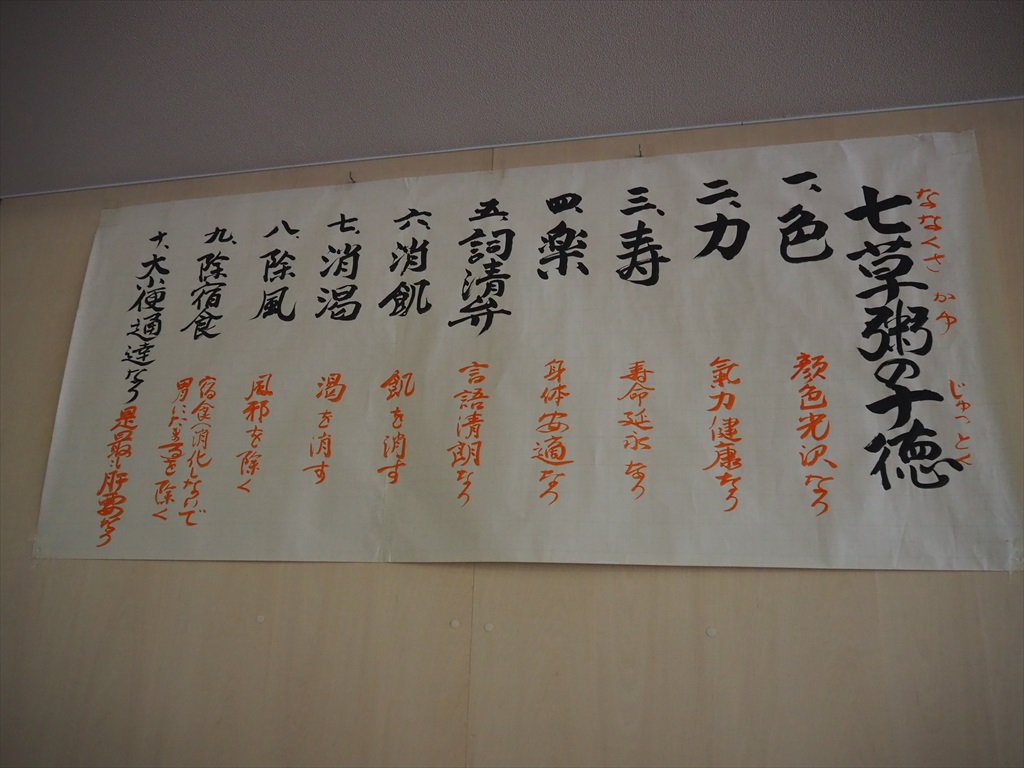 ななくさ かゆ じゅっとく
七草粥の十徳
一、色 顔色光沢なり
二、力 氣力健康なり
三、寿 寿命延永なり
四、楽 身体安適なり
五、詞清弁 言語清朗なり
六、消飢 飢を消す
七、消渇 渇を消す
八、除風 風邪を除く
九、除宿食 宿食(消化なりで
胃にたまるを除く
十、大小便通達なり 是最も肝要なり